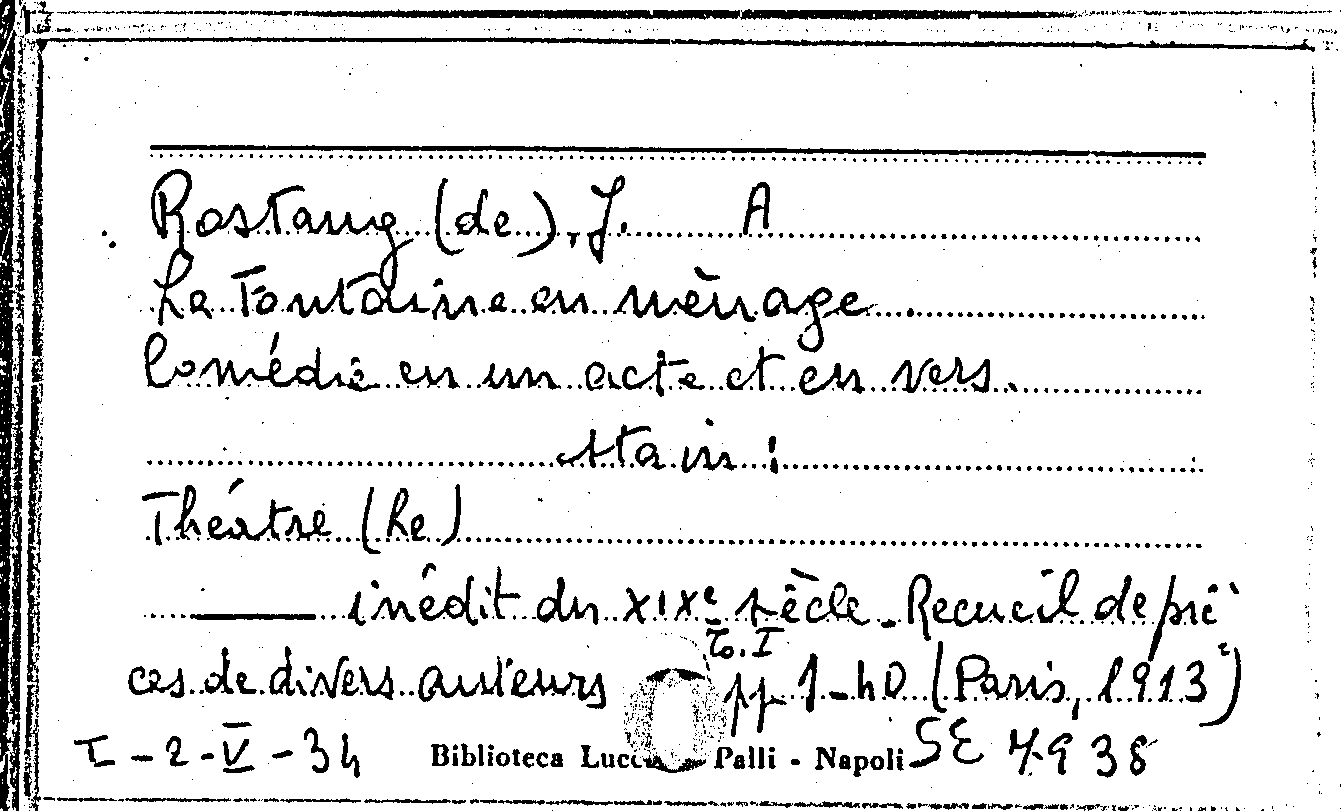 Rostang (de), J. A
La Fontaine en mènage
Comédie en un acte et en vers.
sta in:
Théatre (Le)
inédit du XIXe sècle - Recueil de piè
T. I
ces de divers auteurs pp 1-40 (Paris, 1913)
I-2-V-34 Biblioteca Palli - Napoli SE 7938